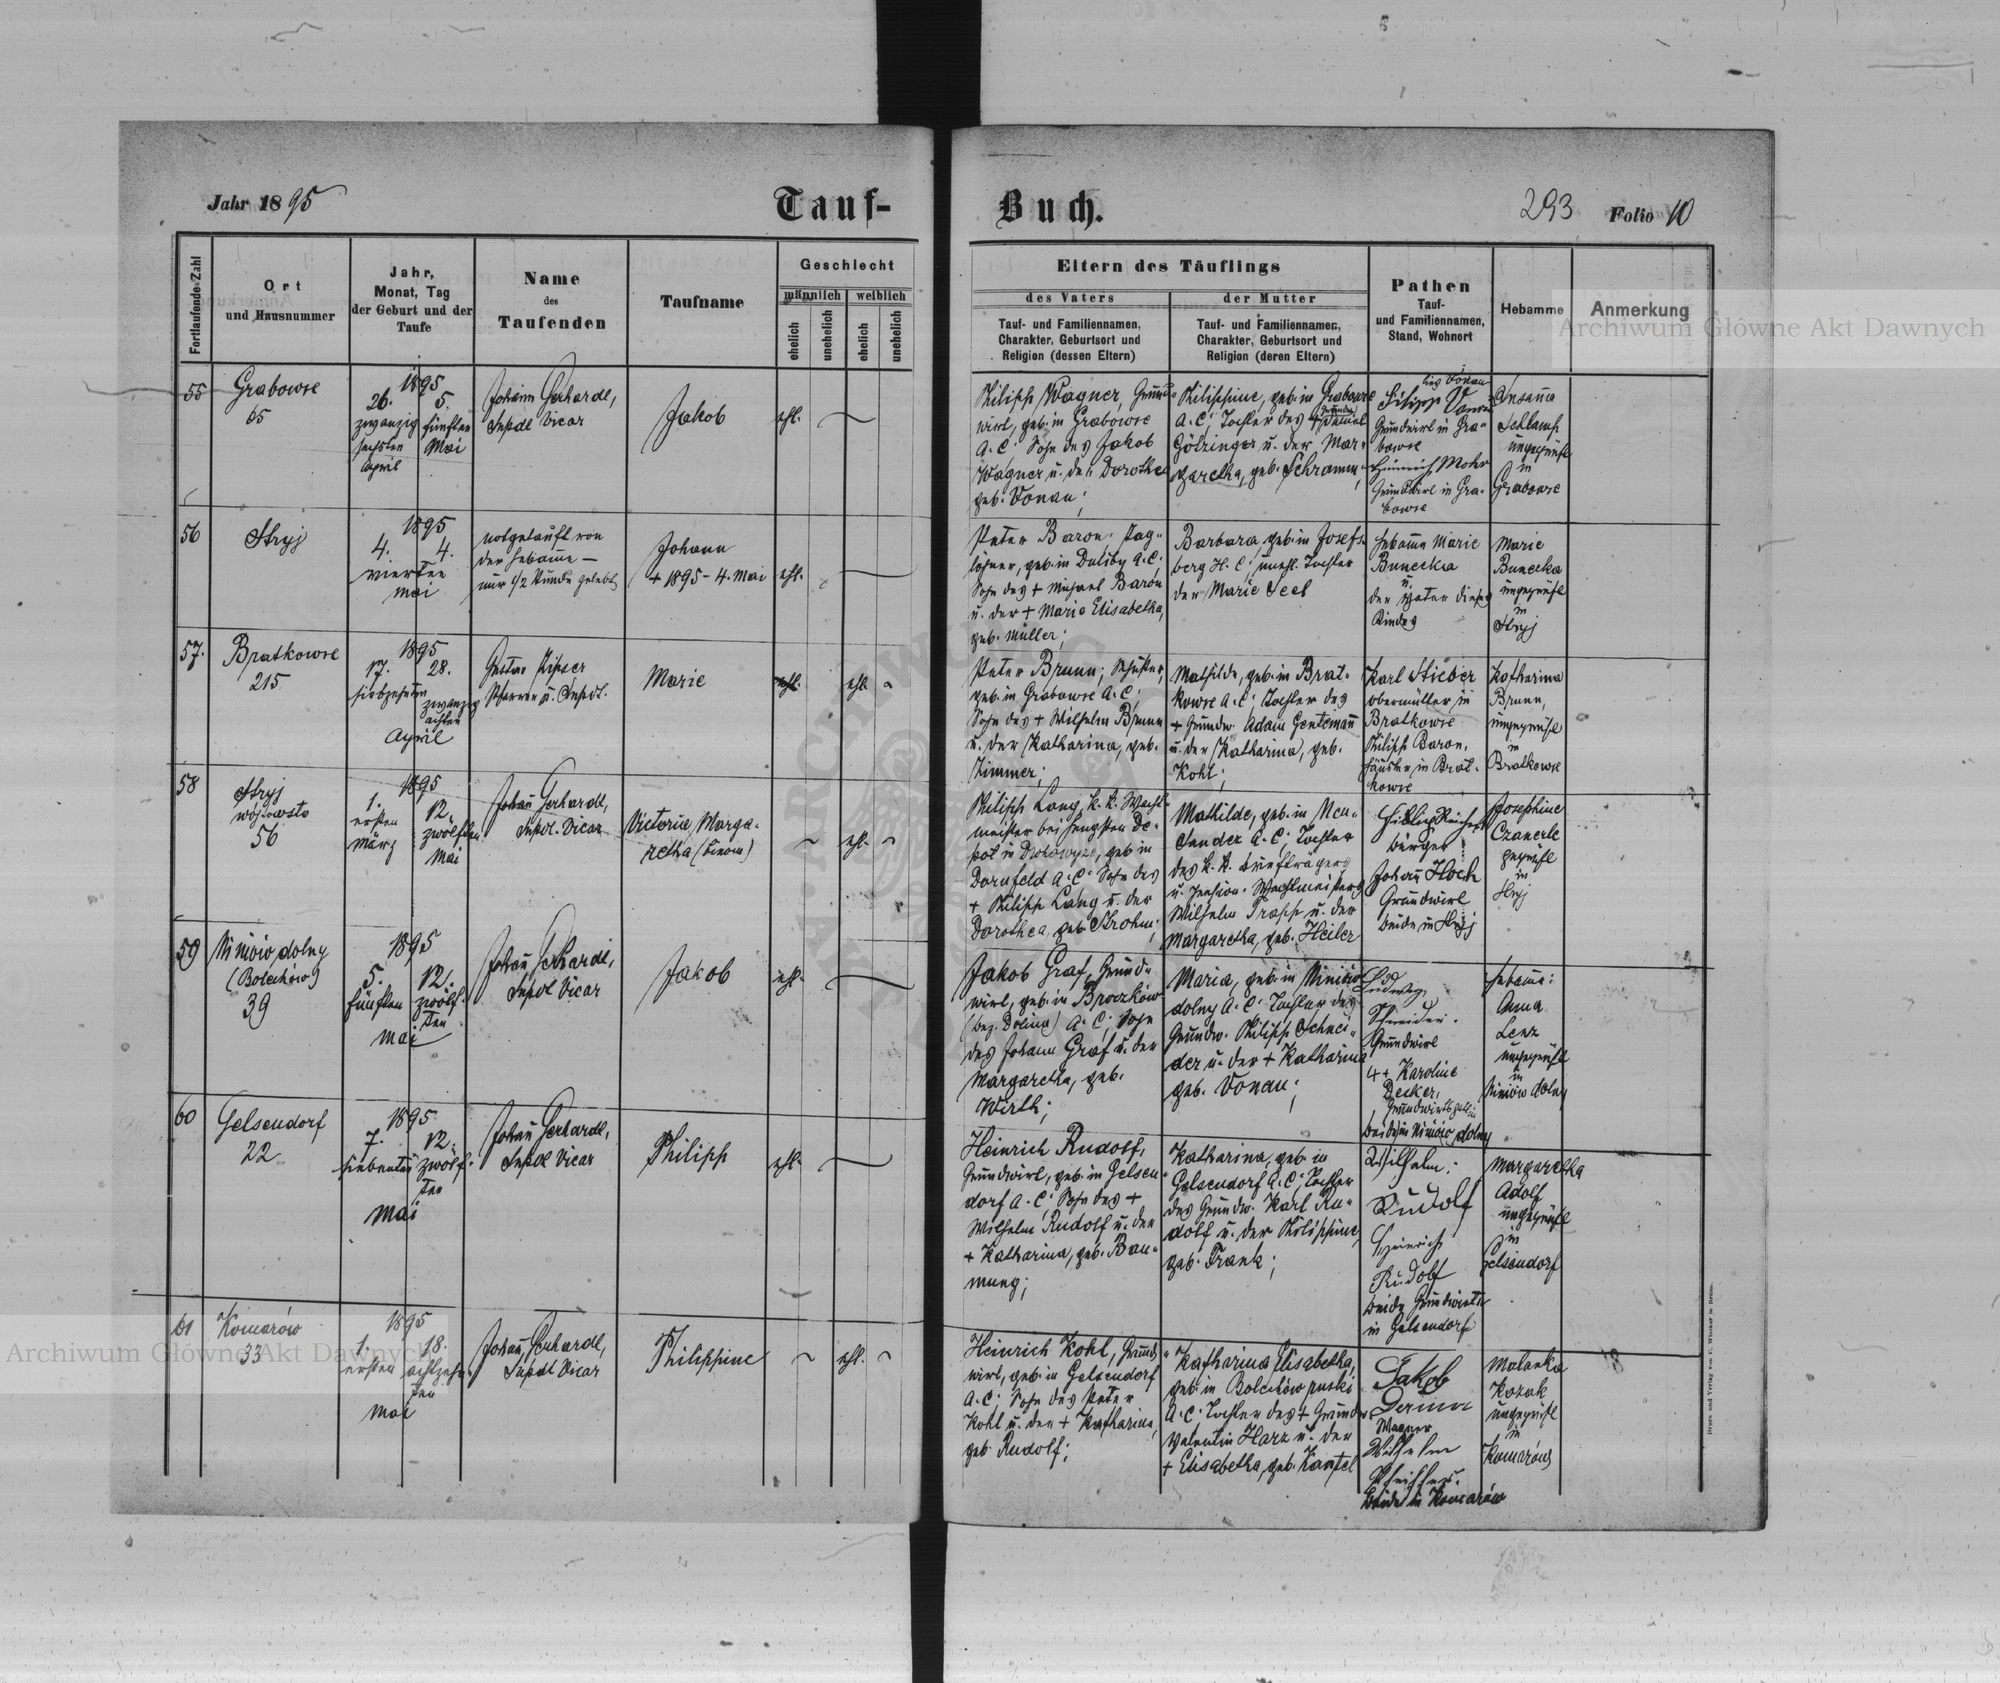 Jahr 1895
Tauf-
Buch.
293
Folio 10
Fortlaufende-Zahl
Ort
und Hausnummer
Jahr,
Monat, Tag
der Geburt und der
Taufe
Name
des
Taufenden
Taufname
Geschlecht
männlich
weiblich
ehelich
unehelich
ehelich
unehelich
Eltern des Täuflings
des Vaters
Tauf- und Familiennamen,
Charakter, Geburtsort und
Religion (dessen Eltern)
der Mutter
Tauf- und Familiennamen,
Charakter, Geburtsort und
Religion (deren Eltern)
Pathen
Tauf-
und Familiennamen,
Stand, Wohnort
Hebamme
Anmerkung
Archiwum Główne Akt Dawnych
55
Grabowce
65
1895
26.
zwanzig
sechsten
April
5.
fünften
Mai
Johann Gerhardt,
Supdt Vicar
Jakob
ehl.
Philipp Wagner, Grund-
wirt, geb. in Grabowce
A.C; Sohn des Jakob
Wagner u. der Dorothea
geb. Vonau;
Philippine, geb. in Grabowce
A.C; Tochter des Daniel
Götzinger u. der Mar-
garetha, geb. Schramm;
Filipp Vonau
Grundwirt in Gra-
bowce
Heinrich Mohr
Grundwirt in Gra-
bowce
Susanna
Schlamp
ungeprüft
in
Grabowce
56
Stryj
1895
4. 4.
vierten
Mai
notgetauft von
der Hebamme —
nur 1/2 Stunde gelebt
Johann
+ 1895 - 4. Mai
ehl.
Peter Baron, Tag-
löhner, geb. in Duliby A.C.
Sohn des + Michael Baron
u. der + Marie Elisabetha,
geb. Müller;
Barbara, geb. in Josefs-
berg H.C; unehl. Tochter
der Marie Seel
Hebamme Marie
Buneckia
u.
der Vater dieses
Kindes
Marie
Bunecka
ungeprüft
in
Stryj
57.
Bratkowce
215
1895
17.
siebzehnten
28.
zwanzig
achten
April
Gustav
Pfarrer u. Supdt.
Marie
ehl.
ehl.
Peter Brunn; Schuster,
geb. in Grabowce A.C;
Sohn des + Wilhelm Brunn
u. der Katharina, geb.
Zimmer;
Mathilde, geb. in Brat-
kowce A.C; Tochter des
+ Grundw. Adam Gentemann
u. der Katharina, geb.
Kohl;
Karl Stieber
Obermüller in
Bratkowce
Philipp Baron,
Häusler in Brat-
kowce
Katharina
Brunn,
ungeprüft
in
Bratkowce
58
Stryj
56
1895
1.
ersten
März
12.
zwölften
Mai
Johann Gerhardt,
Supdt. Vicar
Victoria, Marga-
retha (binom)
ehl.
Philipp Lang, k. k. Wacht-
meister bei Hengsten De-
pot in Drohowyże, geb. in
Dornfeld A.C. Sohn des
+ Philipp Lang u. der
Dorothea geb. Strohm;
Mathilde, geb. in
A.C; Tochter
des k. k. Briefträgers
u. pension. Wachtmeisters
Wilhelm Tropp u. der
Margaretha, geb. Heiler
Bürger
Johann Hoch
Grundwirt
beide in Stryj
Josephine
Czanerle
geprüft
in
Stryj
59
Niniow dolny
(Bolechów)
39
1895
5.
fünften
12.
zwölf-
ten
Mai
Johann Gerhardt,
Supdt Vicar
Jakob
ehl.
Jakob Graf, Grund-
wirt, geb. in Broczków
(Bez. Dolina) A.C; Sohn
des Johann Graf u. der
Margaretha, geb.
Wirth;
Maria, geb. in Niniow
dolny A.C. Tochter des
Grundw. Philipp Schnei-
der u. der + Katharina
geb. Vonau;
Ludwig
Schneider.
Grundwirt
Karoline
Decker,
Grundwirtsgattin
beide in Niniow dolny
Hebamme:
Anna
Lenz
ungeprüft
in
Niniow dolny
60
Gelsendorf
22
1895
7.
siebenten
12.
zwölf-
ten
Mai
Johann Gerhardt,
Supdt Vicar
Philipp
ehl.
Heinrich Rudolf,
Grundwirt, geb. in Gelsen-
dorf A.C; Sohn des +
Wilhelm Rudolf u. der
+ Katharina, geb. Bau-
mung;
Katharina, geb. in
Gelsendorf A.C; Tochter
des Grundw. Karl Ru-
dolf u. der Philippine,
geb. Frank;
Wilhelm
Rudolf
Heinrich
Rudolf
beide Grundwirte
in Gelsendorf
Margaretha
Adolf
ungeprüft
in
Gelsendorf
61
Komarów
33
1895
1.
ersten
18.
achtzehn-
ten
Mai
Johann Gerhardt,
Supdt Vicar
Philippine
ehl.
Heinrich Kohl, Grund-
wirt, geb. in Gelsendorf
A.C; Sohn des Peter
Kohl u. der + Katharina,
geb. Rudolf;
Katharina Elisabetha,
geb. in Bolechów ruski
A.C; Tochter des + Grundw.
Valentin Harz u. der
+ Elisabetha, geb. Kantel
Jakob
Wagner
Wilhelm
beide in Komarów
Malanka
Kozak
ungeprüft
in
Komarów
Archiwum Główne Akt Dawnych